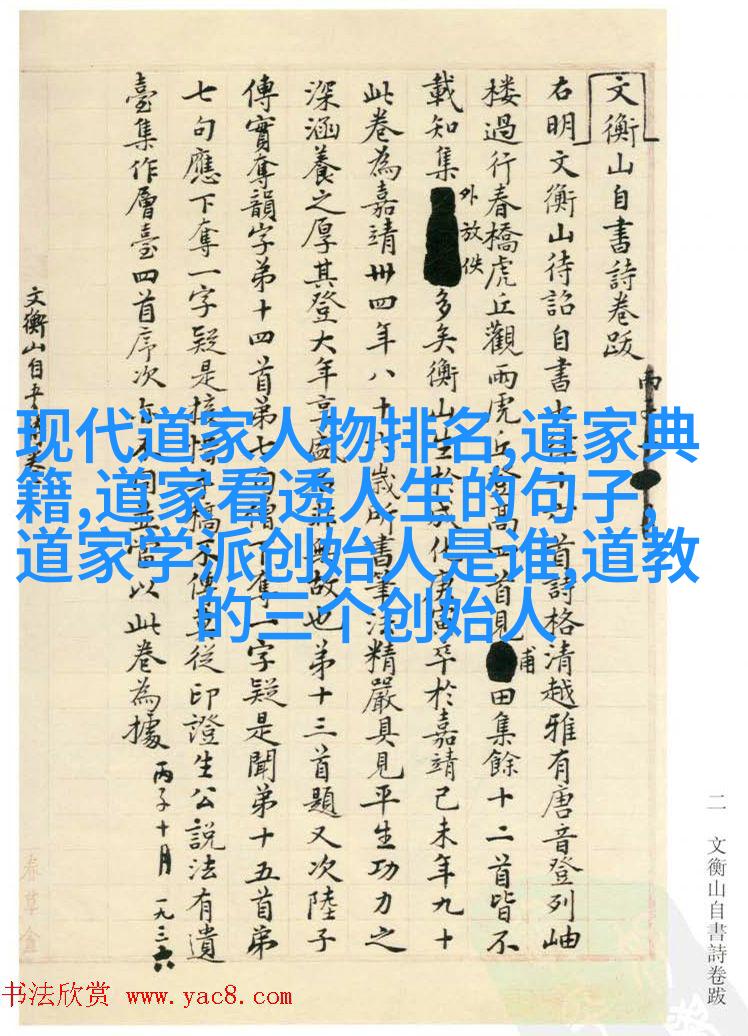 文衡山自書詩卷跋
右明文衡山待詔自書
首詩格清越雅有唐音登列岫
楼過行春橋虎丘觀雨虎丘
首見甫田集餘十二首皆不
載知集外放佚多矣衡山生於成化
卒於嘉靖己未年九十
此卷為嘉靖卅四年八十六歲所書筆法精嚴具見平生功力之
深涵養之厚其登大年享盛
故也弟十三首題又次陸子
傳實奪韻字弟十四首弟七句
下奪一字疑是聞弟十五首弟
七句應下奪一字疑是
橋
從印證生公說法有遺
臺集作層臺四首序次
以此卷為據
丙子十月 一九三六
文衡山自書
现代道家人物排名,道家典
籍,道家看透人生的句子,
道家学派创始人是谁,道教
的三个创始人
二 文衡山自書詩卷跋
书法欣赏 www.yac8.com